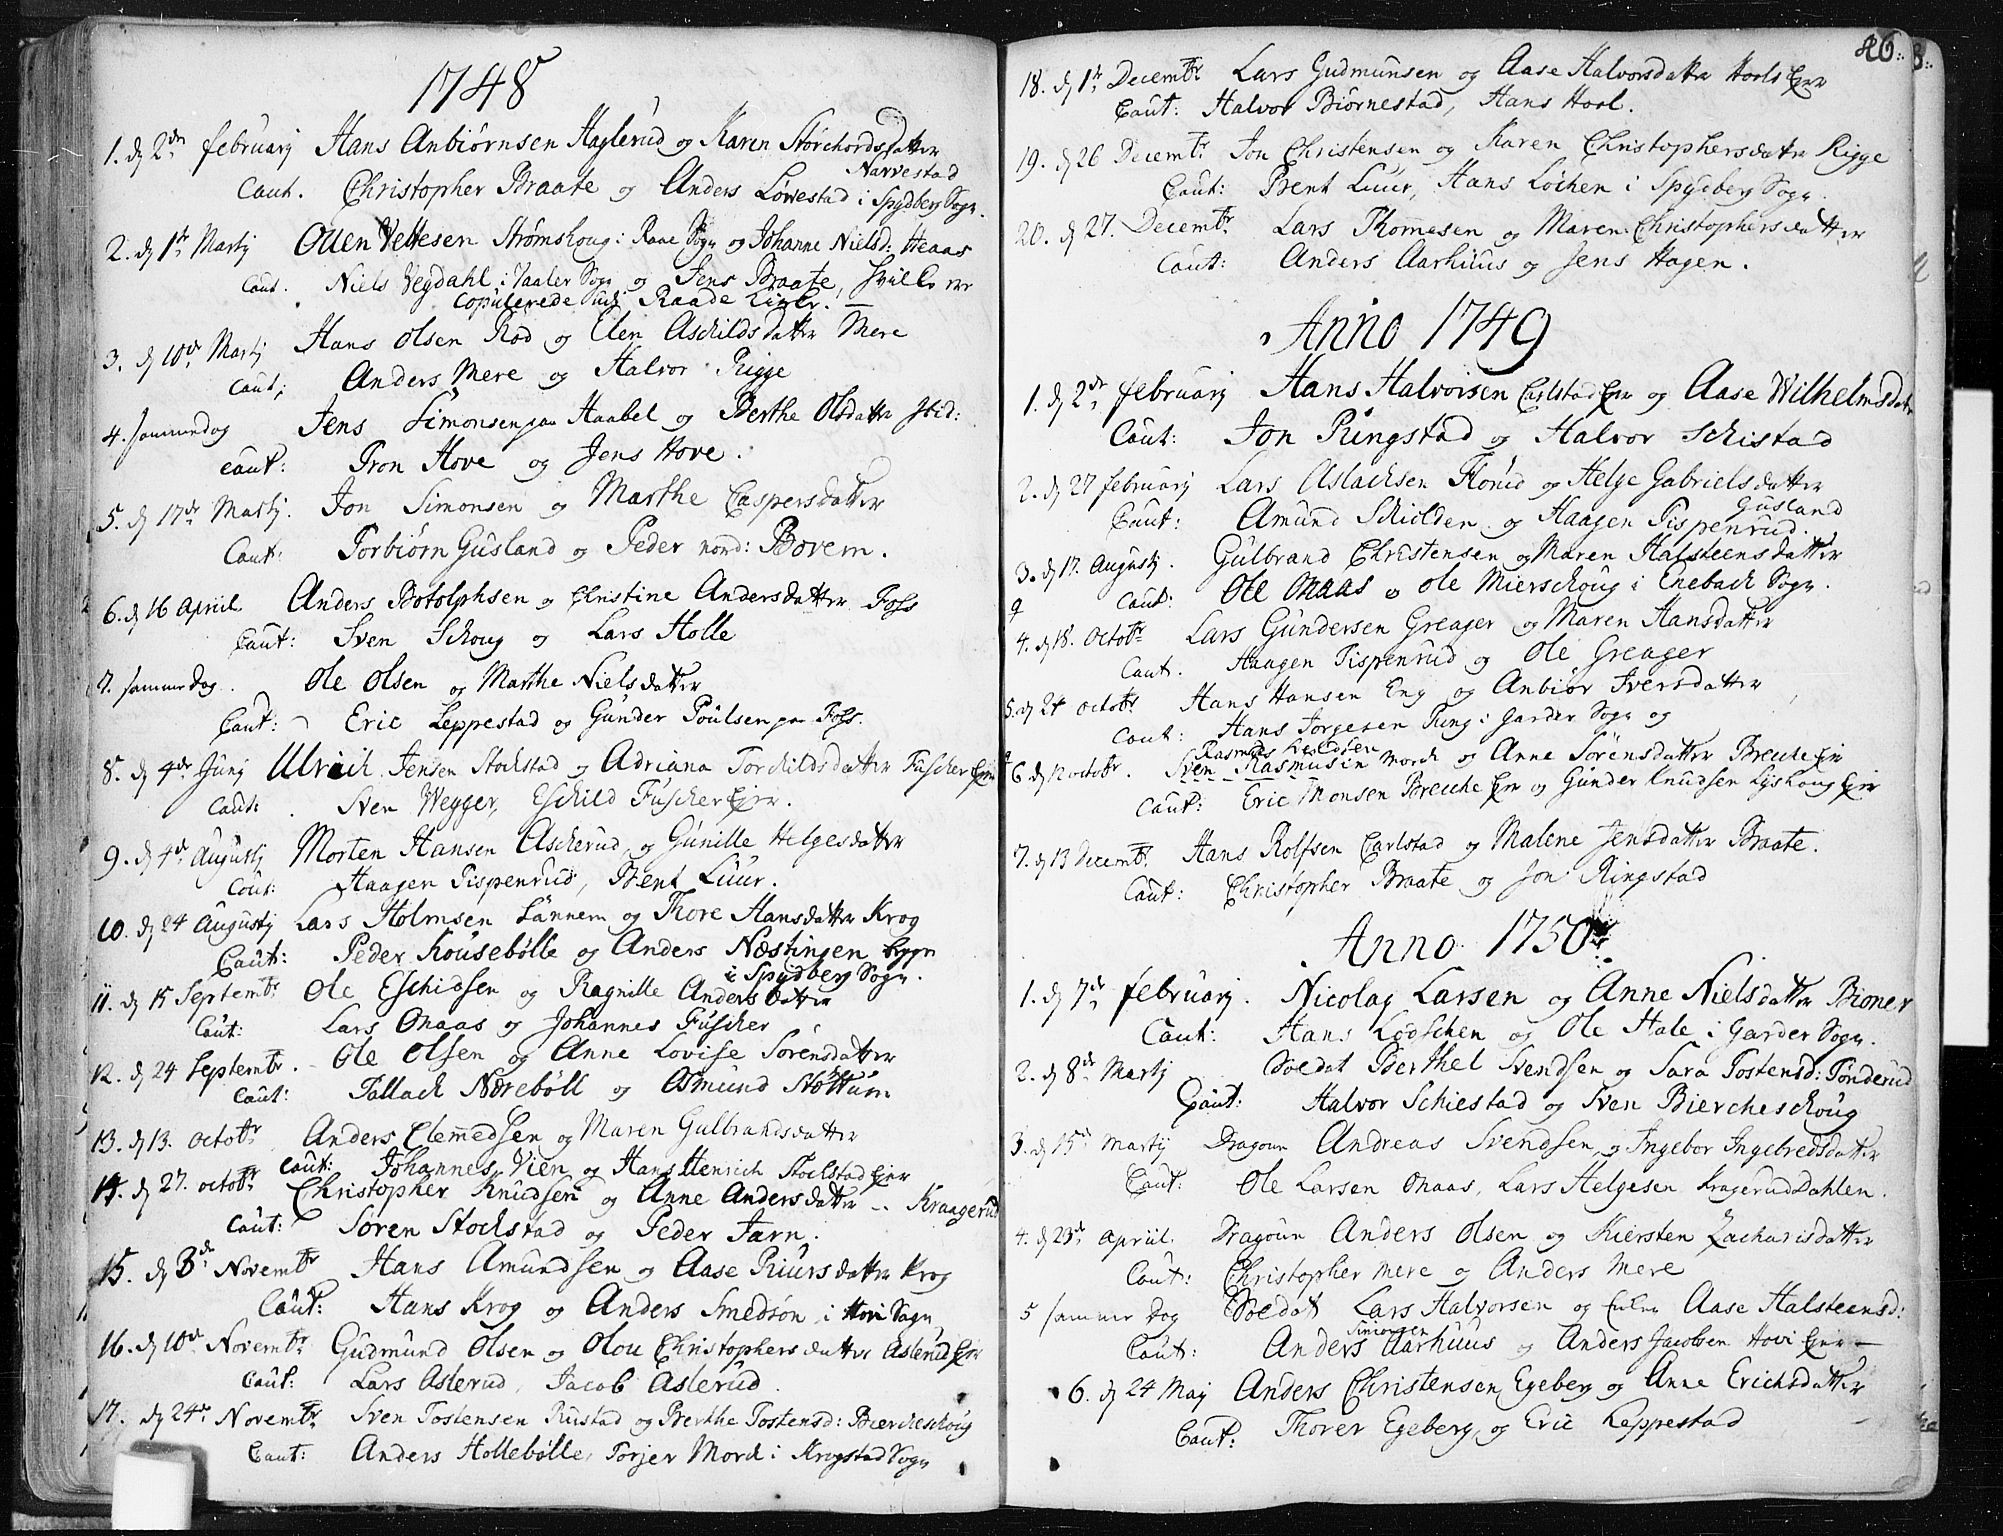 1748
1. d 2den februarij Hans Anbiørnsen Haglerud og Karen Storchordsdatter
Narvestad
Caut. Christopher Braate og Anders Løvestad i Spydberg Sogn.
2. d 1te Martij Ollen Vettesen Strømskoug i Raae Sogn og Johanne Nielsd: Heaas
Caut. Niels Vegdahl i Vaaler Sogn og Jens Braate, hville ere
copulerede udi Raade Kircke.
3. d 10de Martij Hans Olsen Rod og Elen Aschildsdatter Mere
Caut; Anders Mere og Halvor Rigge
4. sammedag Jens Simonsen paa Haabel og Berthe Olsdatter ibid:
Caut: Tron Hove og Jens Hove.
5. d 17de Martij. Jon Simonsen og Marthe Caspersdatter
Caut: Torbiørn Gusland og Peder nord: Bovem.
6. d 16 Apriil Anders Botolphsen og Christine Andersdatter Foss
Caut: Sven Schoug og Lars Holle
7. sammedag. Ole Olsen og Marthe Nielsdatter
Caut: Eric Leppestad og Gunder Poulsen paa Foss.
8. d 4de Junij Ulrich Jensen Stochstad og Adriana Torchildsdatter Fuscher Ejer
Caut. Sven Wegger, Eschild Fuscher Ejer.
9. d 4de Augustij Morten Hansen Ascherud og Gunille Helgesdatter
Caut: Haagen Tispenrud, Bent Luur.
10. d 24 Augustij Lars Holmsen Sannem og Thore Hansdatter Krog
Caut: Peder Kousebølle og Anders Næstingen
i Spydberg Sogn.
11. d 15 Septembr Ole Eschidsen og Ragnille Andersdatter
Caut: Lars Onaas og Johannes Fuscher
12. d 24 Septembr. Ole Olsen og Anne Lovise Sørensdatter
Caut: Tallach Nærebøll og Asmund Støttum
13. d 13. Octobr Anders Clemedsen og Maren Gulbrandsdatter
Caut: Johannes Vien og Hans Henrich Stochstad Ejer
14. d 27. octobr Christopher Knudsen og Anne Andersdatter -- Kraagerud
Caut: Søren Stochstad og Peder Jarn.
15. d 3de Novembr Hans Amundsen og Aase Riursdatter Krog
Caut: Hans Krog og Anders Smedsøn i Hovi Sogn
16. d 10de Novembr Gudmund Olsen og Olou Christophersdatter Aslerud Ejer
Caut: Lars Aslerud, Jacob Aslerud.
17. d 24de Novembr Sven Tostensen Rustad og Berthe Tostensd: Biercheschoug
Caut: Anders Hollebølle, Torjer Mork i Krogstad Sogn
86.
18. d 1te Decembr Lars Gudmunsen og Aase Halvorsdatter Hools Ejer
Caut: Halvor Biørnestad, Hans Hool.
19. d 26 Decembr Jon Christensen og Karen Christophersdatr Rigge
Caut: Bent Luur, Hans Løchen i Spydberg Sogn.
20. d 27. Decembr Lars Thomesen og Maren Christophersdatter
Caut: Anders Aarhuus og Jens Hagen.
Anno 1749
1. d 2de februarij Hans Halvorsen Carlstad Ejer og Aase Wilhelmsdatr
Caut: Jon Ringstad og Halvor Schistad
2. d 27 februarij Lars Aslachsen Florud og Helge Gabrielsdatter
Gusland
Caut: Amund Schiolden og Haagen Tispenrud.
3. d 17. Augustj. Gulbrand Christensen og Maren Halsteensdatter
Caut: Ole Onaas og Ole Mierschoug i Enebach Sogn.
4. d 18. Octobr Lars Gundersen Greager og Maren Hansdatter
Caut. Haagen Tispenrud og Ole Greager
5. d 24 octobr. Hans Hansen Eng og Anbiør Iversdatter
Caut: Hans Jorgesen Pung i Garder Sogn og
Rasmus Svendsen
6. d 12 octobr. Sven Rasmusen Morch og Anne Sørensdatter Breche Ejer
Caut: Eric Monsen Breche Ejer og Gunder Knudsen Lyskoug Ejer
7. d 13 Decembr. Hans Rolfsen Carlstad og Malene Jensdatter Braate.
Caut: Christopher Braate og Jon Ringstad
Anno 1750
1. d 7de februarij. Nicolay Larsen og Anne Nielsdatter Bioner
Caut: Hans Lodschen og Ole Hale i Garder Sogn.
2. d 8de Martij Soldat Berthel Svendsen og Sara Tostensd: Tonderud
Caut: Halvor Schiestad og Sven Biercheschoug
3. d 15de Martij Dragoun Andreas Svendsen og Ingebor Ingebredsdatter
Caut: Ole Larsen Onaas, Lars Helgesen Kragerud Dahlen.
4. d 23de Apriil. Dragoun Anders Olsen og Kiersten Zacharisdatter
Caut: Christopher Mere og Anders Mere
5 sammer Dag Soldat Lars Halvorsen og Aase Halsteensd:
Simonsen
Caut: Anders Aarhuus og Anders Jacobsen Hovi Ejer —
6. d 24 Maij Anders Christensen Egeberg og Anne Erichsdatter
Caut: Thorer Egeberg og Eric Leppestad